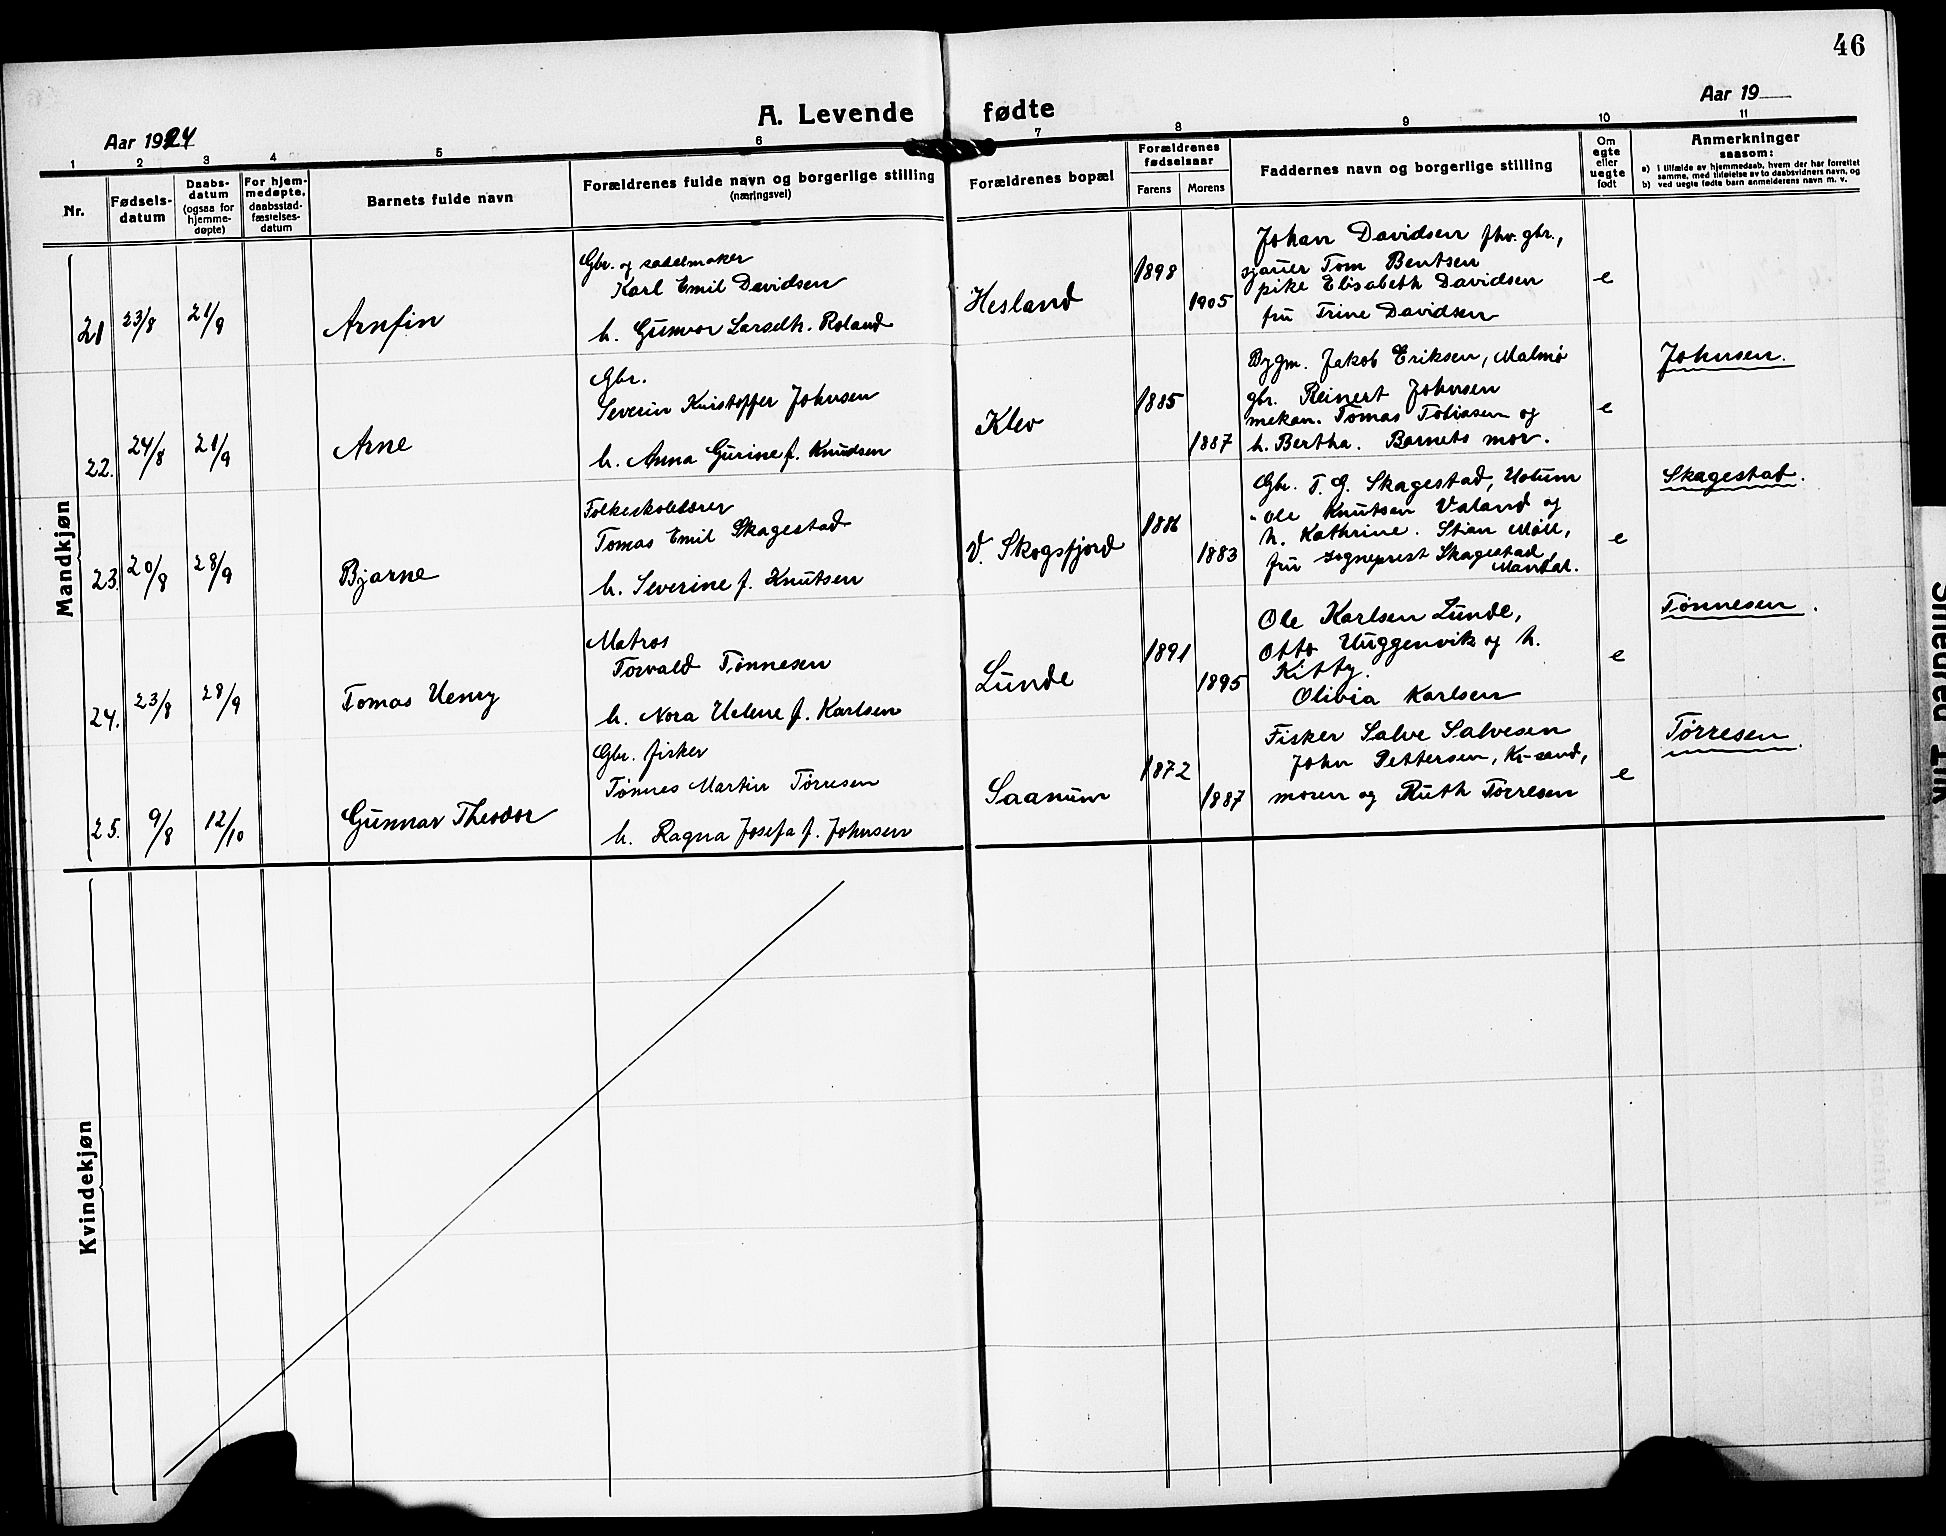 46
A. Levende fødte
Aar 1924
Aar 19
1 2 3 4 5 6 7 8 9 10 11
Nr.
Fødsels-
datum
Daabs-
datum
(ogsaa for
hjemme-
døpte)
For hjem-
medøpte.
daabsstad-
fæstelses-
datum
Barnets fulde navn
Forældrenes fulde navn og borgerlige stilling
(næringsvei)
Forældrenes bopæl
Forældrenes
fødselsaar
Farens Morens
Faddernes navn og borgerlige stilling
Om
egte
eller
uegte
født
Anmerkninger
saasom:
a) i tilfælde av hjemmedaab, hvem der har forrettet
samme, med tilføielse av to daabsvidners navn, og
b) ved uegte fødte barn anmelderens navn m. v.
Mandkjøn
21 23/8 21/9
Arnfin
Gbr. og sadelmaker
Karl Emil Davidsen
h. Gunvor Larsdth. Roland
Hesland
1898
1905
Johan Davidsen fhv. gbr.,
sjauer Tom Bentsen
pike Elisabeth Davidsen
fru Trine Davidsen
e
22. 24/8 21/9
Arne
Gbr.
Severin Kristoffer Johnsen
h. Anna Gurine f. Knudsen
Klev
1885
1887
Bygm. Jakob Eriksen, Malmø
gbr. Reinert Johnsen
mekan. Tomas Tobiasen og
h. Bertha. Barnets mor.
e
Johnsen.
23. 20/8 28/9
Bjarne
Folkeskolelærer
Tomas Emil Skagestad
h. Severine f. Knutsen
V. Skogsfjord
1886
1883
Gbr. T. G. Skagestad, Holum
" Ole Knutsen Valand og
h. Kathrine. Stian Møll,
fru sogneprest Skagestad
Mandal.
e
Skagestad.
24. 23/8 28/9
Tomas Henry
Matros
Torvald Tønnesen
h. Nora Helene f. Karlsen
Lunde
1891
1895
Ole Karlsen Lunde,
Otto Uggenvik og h.
Kitty.
Olivia Karlsen
e
Tønnesen.
25. 9/8 12/10
Gunnar Theodor
Gbr. fisker
Tønnes Martin Tørresen
h. Ragna Josefa f. Johnsen
Saanum
1872
1887
Fisker Salve Salvesen
John Pettersen, Kr-sand,
moren og Ruth Tørresen
e
Tørresen.
Kvindekjøn